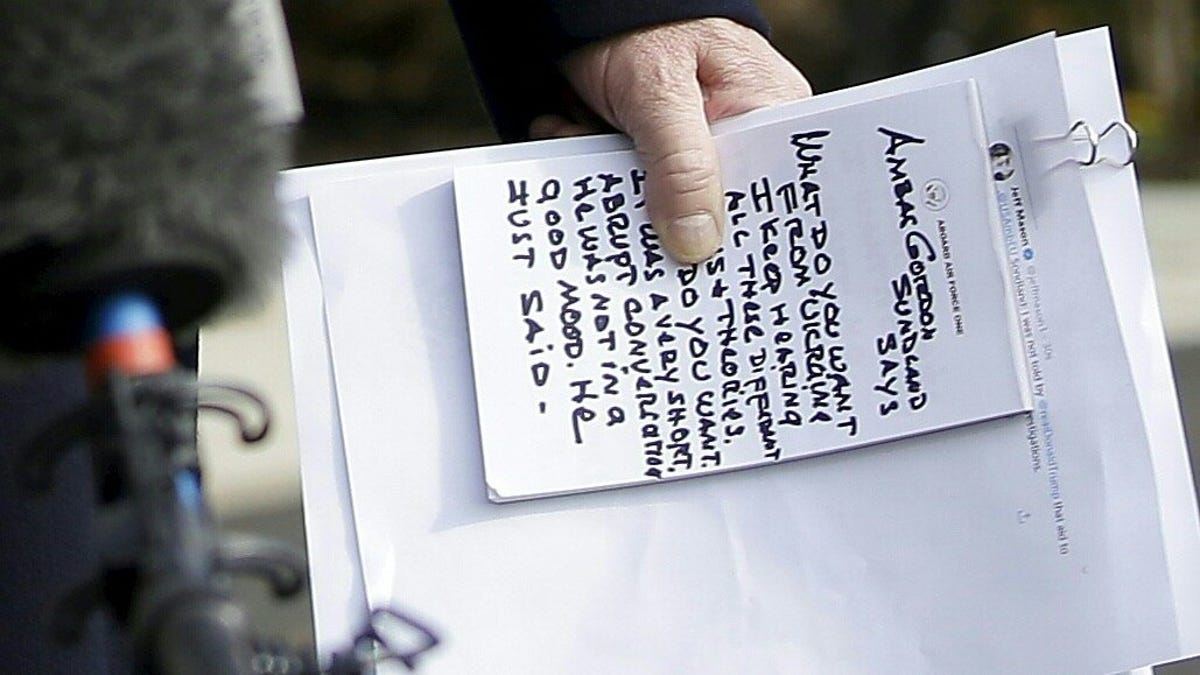 Jeff Mason @jeffmason1 · 30s
@USAmbEU Sondland: I was not told by @realDonaldTrump that aid to
estigations.
ABOARD AIR FORCE ONE
AMBAS GORDON
SUNDLAND
SAYS
WHAT DO YOU WANT
FROM UKRAINE
I KEEP HEARING
ALL THESE DIFFERENT
S & THEORIES.
DO YOU WANT.
IT WAS A VERY SHORT.
ABRUPT CONVERSATION
HE WAS NOT IN A
GOOD MOOD. HE
JUST SAID -